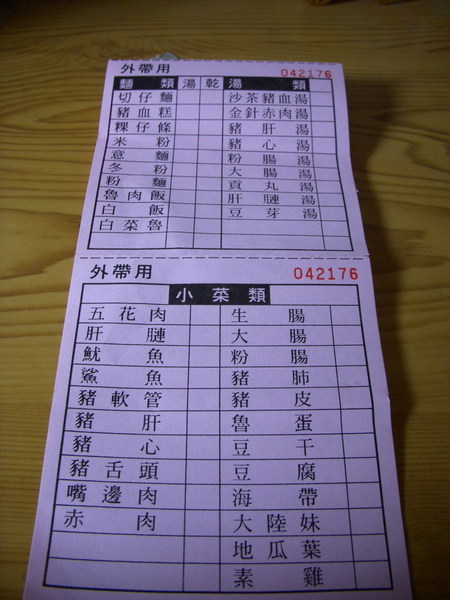 外帶用 042176
麵類 湯 乾 湯類
切仔麵 沙茶豬血湯
豬血糕 金針赤肉湯
粿仔條 豬肝湯
米粉 豬心湯
意麵 粉腸湯
冬粉 大腸湯
粉麵 貢丸湯
魯肉飯 肝膁湯
白飯 豆芽湯
白菜魯
外帶用 042176
小菜類
五花肉 生腸
肝膁 大腸
魷魚 粉腸
鯊魚 豬肺
豬軟管 豬皮
豬肝 魯蛋
豬心 豆干
豬舌頭 豆腐
嘴邊肉 海帶
赤肉 大陸妹
地瓜葉
素雞